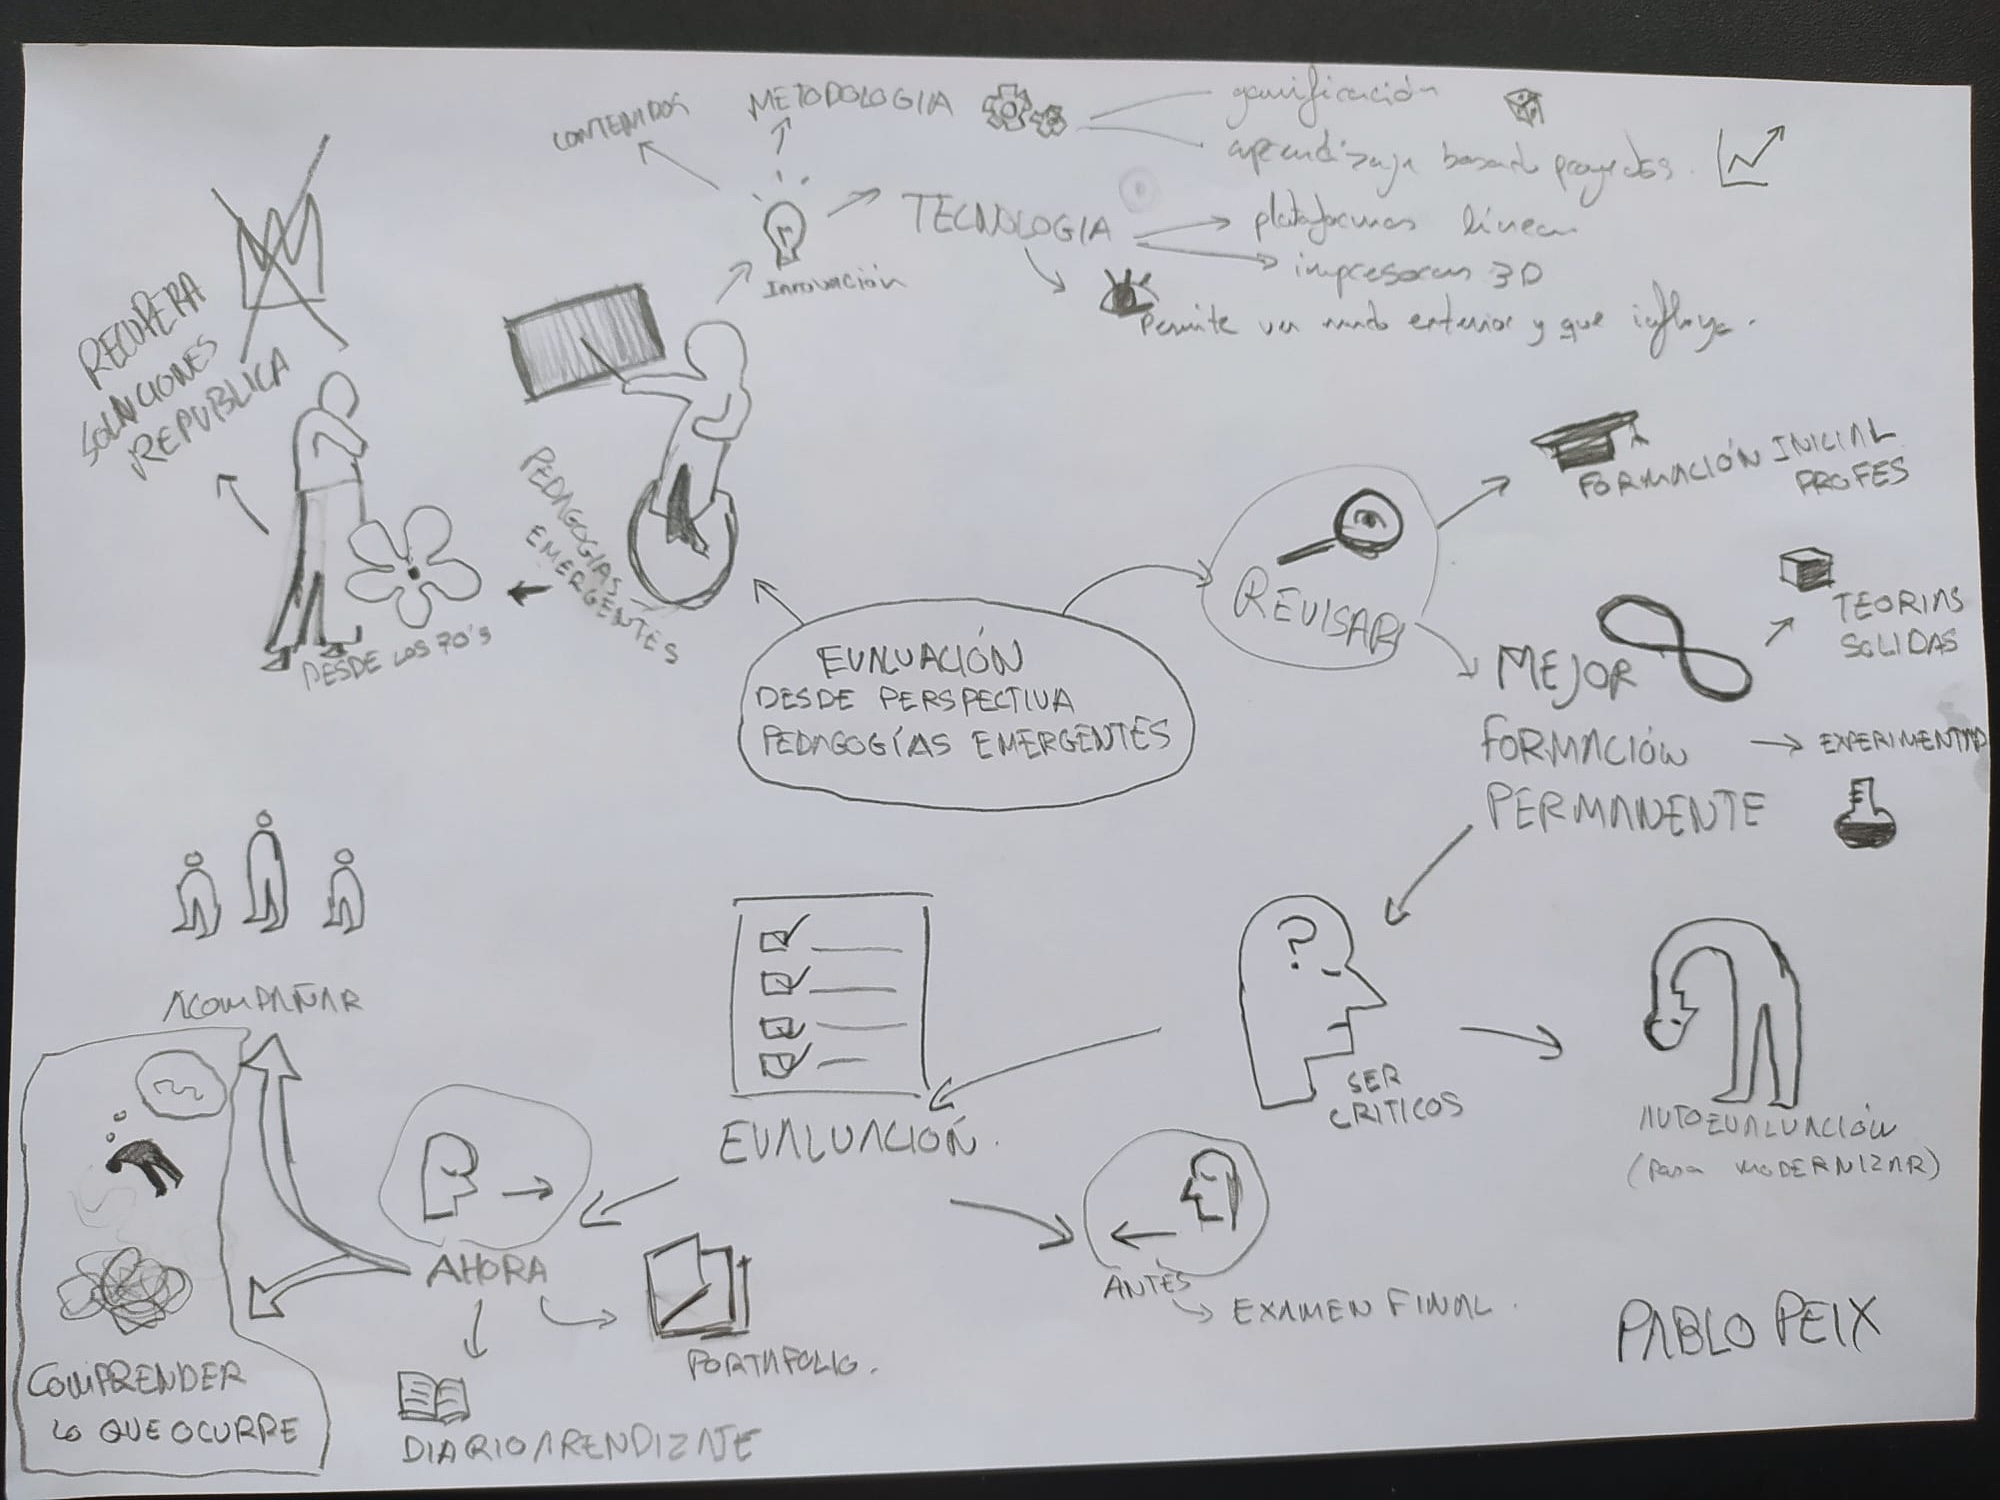 CONTENIDOS
METODOLOGIA
gamificación
aprendizaje basado proyectos.
TECNOLOGIA
plataformas línea
impresoras 3D
Permite ver mundo exterior y que influya.
Innovación
RECUPERA
SOLUCIONES
REPUBLICA
PEDAGOGIAS
EMERGENTES
DESDE LOS 70's
EVALUACIÓN
DESDE PERSPECTIVA
PEDAGOGÍAS EMERGENTES
REVISAR
FORMACIÓN INICIAL
PROFES
MEJOR
FORMACIÓN
PERMANENTE
TEORIAS
SOLIDAS
EXPERIMENTAD
?
SER
CRITICOS
AUTOEVALUACIÓN
(para MODERNIZAR)
EVALUACIÓN.
ANTES
EXAMEN FINAL.
AHORA
PORTAFOLIO.
DIARIO ARENDIZAJE
ACOMPAÑAR
COMPRENDER
LO QUE OCURRE
PABLO PEIX